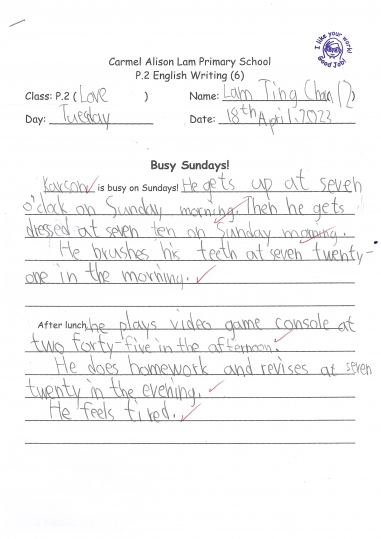 I like your work!
Good Job!
Carmel Alison Lam Primary School
P.2 English Writing (6)
Class: P.2 ( Love ) Name: Lam Ting Chan (2)
Day: Tuesday Date: 18th April, 2023
Busy Sundays!
Karson is busy on Sundays! He gets up at seven
o'clock on Sunday morning. Then he gets
dressed at seven ten on Sunday morning.
He brushes his teeth at seven twenty-
one in the morning.
After lunch, he plays video game console at
two forty-five in the afternoon.
He does homework and revises at seven
twenty in the evening.
He feels tired.